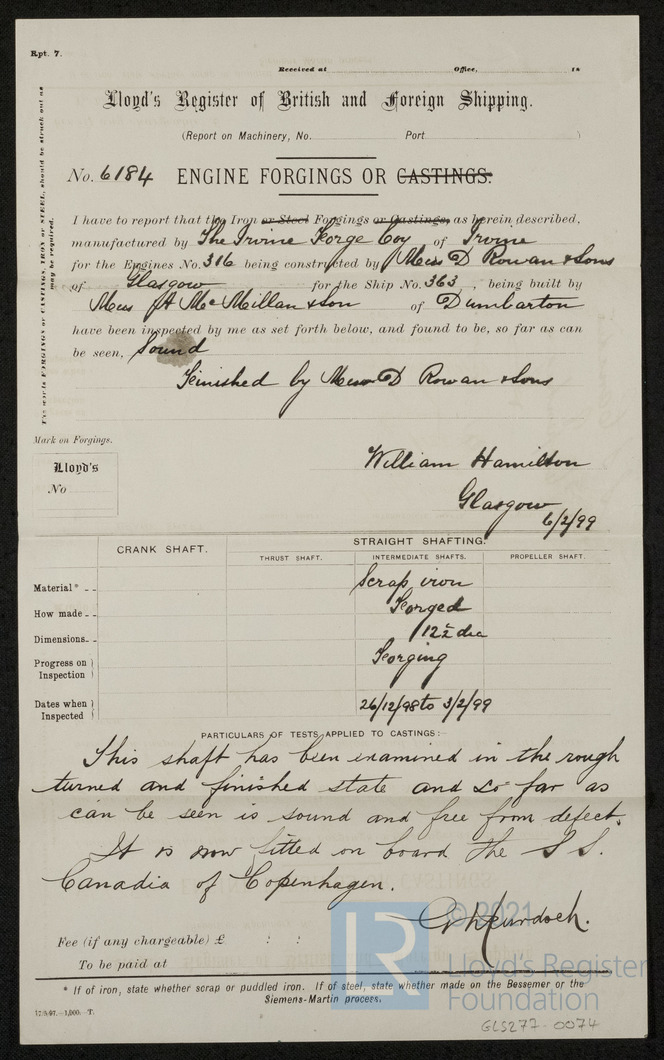 Rpt. 7.
Received at Office, 18
Lloyd's Register of British and Foreign Shipping.
(Report on Machinery, No. Port )
No. 6184 ENGINE FORGINGS OR CASTINGS.
The words FORGINGS or CASTINGS, IRON or STEEL, should be struck out as
may be required.
I have to report that the Iron or Steel Forgings or Castings, as herein described,
manufactured by The Irvine Forge Coy of Irvine
for the Engines No. 316 being constructed by Mess D Rowan & Sons
of Glasgow for the Ship No. 363, being built by
Mess A McMillan & Son of Dumbarton
have been inspected by me as set forth below, and found to be, so far as can
be seen, Sound
Finished by Mess D Rowan & Sons
Mark on Forgings.
Lloyd's
No
William Hamilton
Glasgow
6/2/99
CRANK SHAFT. STRAIGHT SHAFTING.
THRUST SHAFT. INTERMEDIATE SHAFTS. PROPELLER SHAFT.
Material* Scrap iron
How made Forged
Dimensions 12½ dia
Progress on Inspection Forging
Dates when Inspected 26/12/98 to 3/2/99
PARTICULARS OF TESTS APPLIED TO CASTINGS:—
This shaft has been examined in the rough
turned and finished state and so far as
can be seen is sound and free from defect.
It is now fitted on board the S S.
Canadia of Copenhagen.
Murdoch.
Fee (if any chargeable) £ : :
To be paid at
* If of iron, state whether scrap or puddled iron. If of steel, state whether made on the Bessemer or the
Siemens-Martin process.
17.9.97.—1,000.—T.
© 2021
LR
Lloyd's Register
Foundation
GLS277-0074